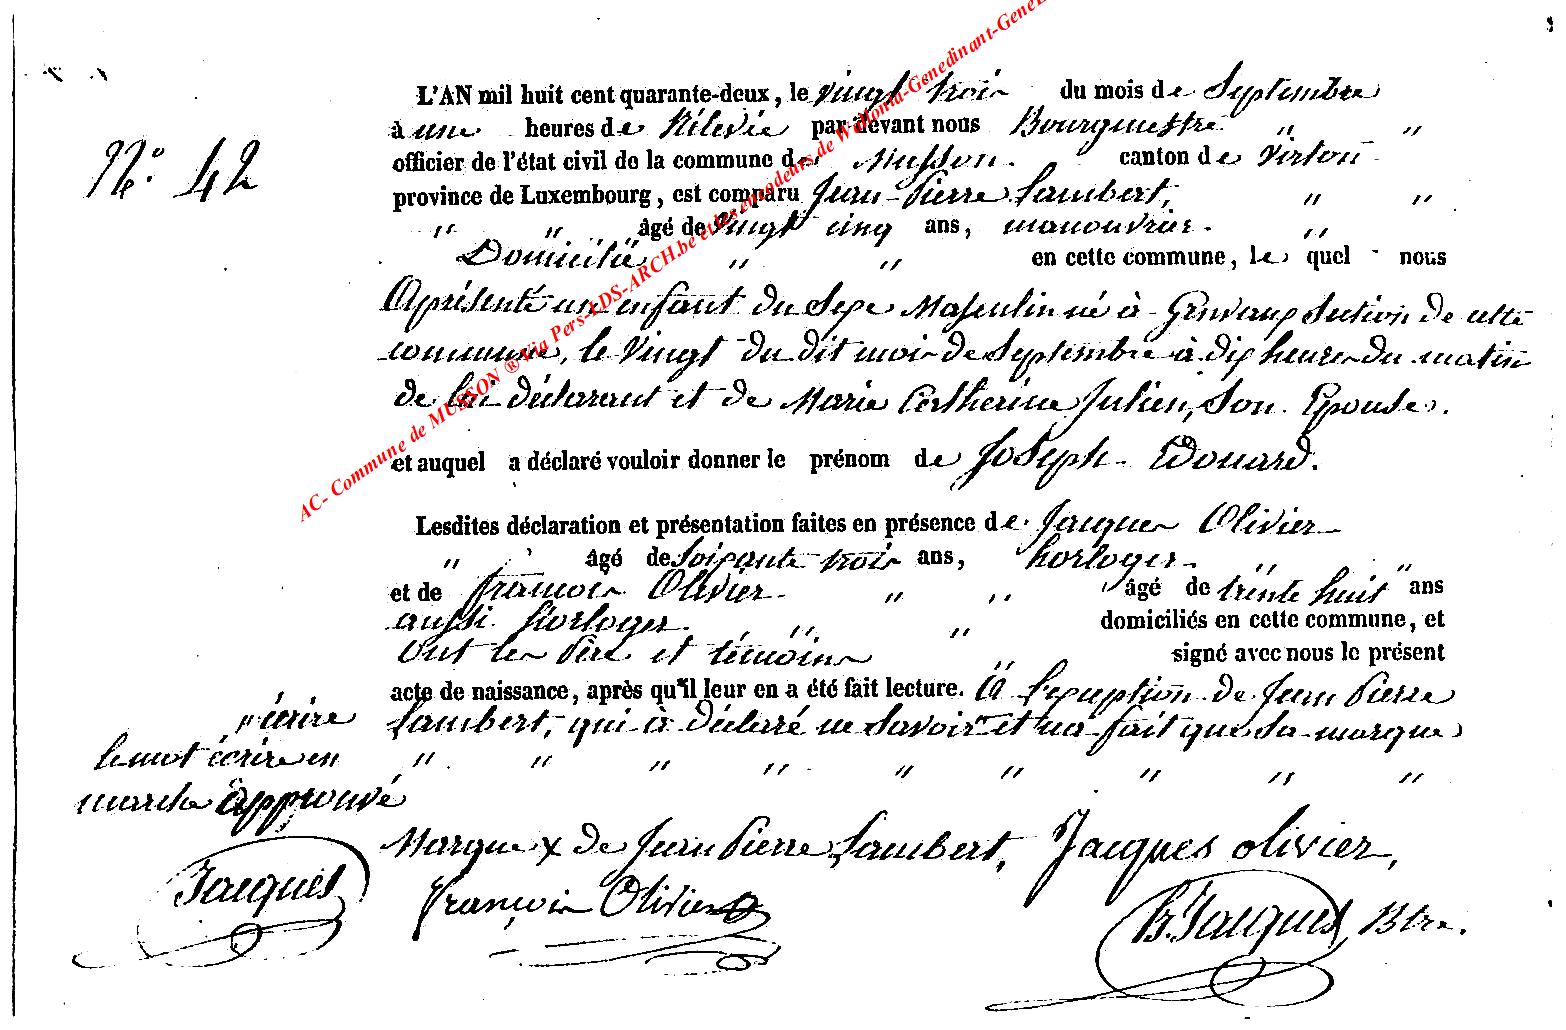 N.° 42
L'AN mil huit cent quarante-deux, le vingt trois du mois de Septembre
à une heures de Rélevée par devant nous Bourgmestre " "
officier de l'état civil de la commune de Musson. canton de Virton
province de Luxembourg, est comparu Jean-Pierre Lambert, " "
" " âgé de vingt cinq ans, manouvrier. "
Domicilié " " en cette commune, le quel nous
a présenté un enfant du sexe Masculin né à Gennevaux section de cette
commune, le vingt du dit mois de Septembre à dix heures du matin
de lui déclarant et de Marie Catherine Julien, Son Epouse.
et auquel a déclaré vouloir donner le prénom de Joseph-Edouard.
Lesdites déclaration et présentation faites en présence de Jacques Olivier
" " âgé de soixante trois ans, horloger. " "
et de françois Olivier " " " âgé de trente huit ans
aussi horloger. " " domiciliés en cette commune, et
ont les Père et témoins " signé avec nous le présent
acte de naissance, après qu'il leur en a été fait lecture. à l'exception de Jean Pierre
Lambert, qui a déclaré ne savoir et n'a fait que sa marque
" " " " " " " " "
" écrire
le mot écrire en
marche approuvé
Jacques
Marque x de Jean Pierre Lambert, Jacques olivier,
françois Olivier
Jacques, Btre.
AC- Commune de MUSSON ® Via Pers-LDS-ARCH.be et les encodeurs de Wallonia-Genedinant-Gene